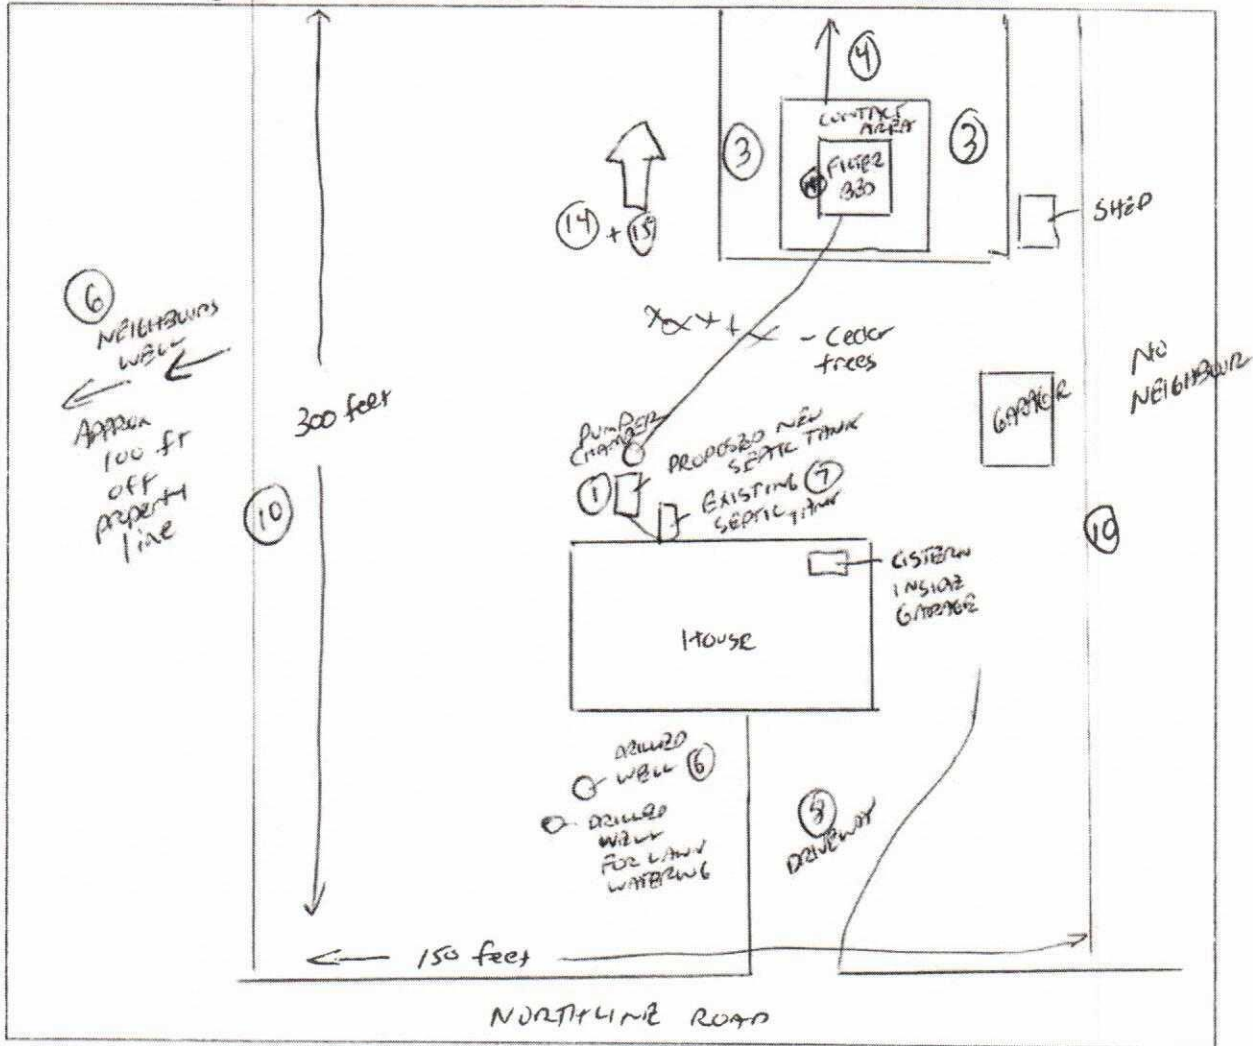 4
CONTACT
AREA
3
FILTER
BED
3
14 + 15
SHED
6
NEIGHBOURS
WELL
APPROX
100 ft
off
property
line
300 feet
- Cedar
trees
NO
NEIGHBOUR
GARAGE
PUMP
CHAMBER
PROPOSED NEW
SEPTIC TANK
1
EXISTING 7
SEPTIC TANK
10
10
CISTERN
INSIDE
GARAGE
HOUSE
DRILLED
WELL 6
DRILLED
WELL
FOR LAWN
WATERING
8
DRIVEWAY
150 feet
NORTHLINE ROAD